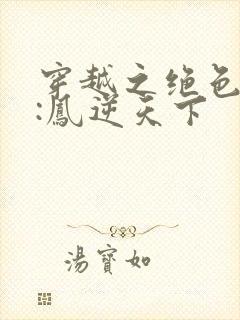 穿越之绝色
:鳳逆天下
湯寶如